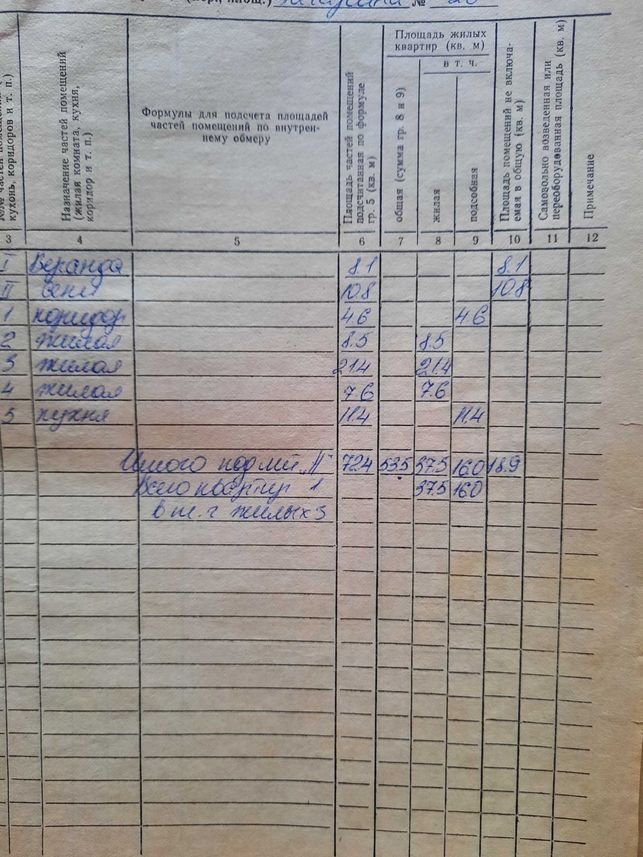 № 20
кухонь, коридоров и т. п.)
Назначение частей помещений (жилая комната, кухня, коридор и т. п.)
Формулы для подсчета площадей частей помещений по внутреннему обмеру
Площадь частей помещений подсчитанная по формуле гр. 5 (кв. м)
Площадь жилых квартир (кв. м)
общая (сумма гр. 8 и 9)
в т. ч.
жилая
подсобная
Площадь помещений не включаемая в общую (кв. м)
Самовольно возведенная или переоборудованная площадь (кв. м)
Примечание
3 4 5 6 7 8 9 10 11 12
I Веранда 8.1 8.1
II Сени 10.8 10.8
1 коридор 4.6 4.6
2 жилая 8.5 8.5
3 жилая 21.4 21.4
4 жилая 7.6 7.6
5 кухня 11.4 11.4
Итого по лит. "А" 72.4 53.5 37.5 16.0 18.9
Всего квартир 1 37.5 16.0
в т. ч жилых 3